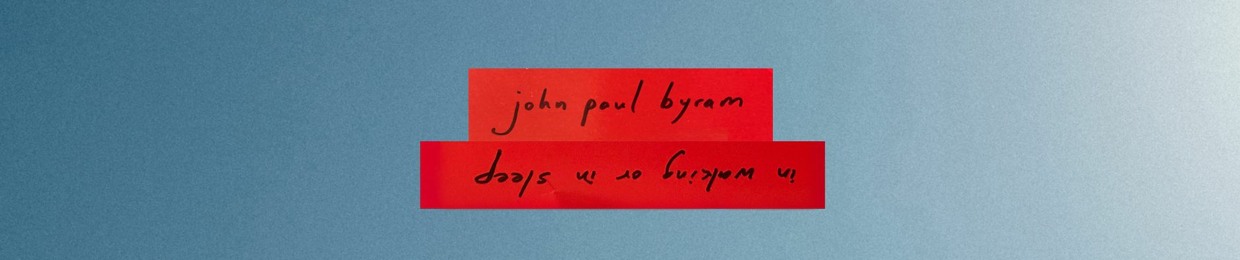 john paul byram
in waking or in sleep